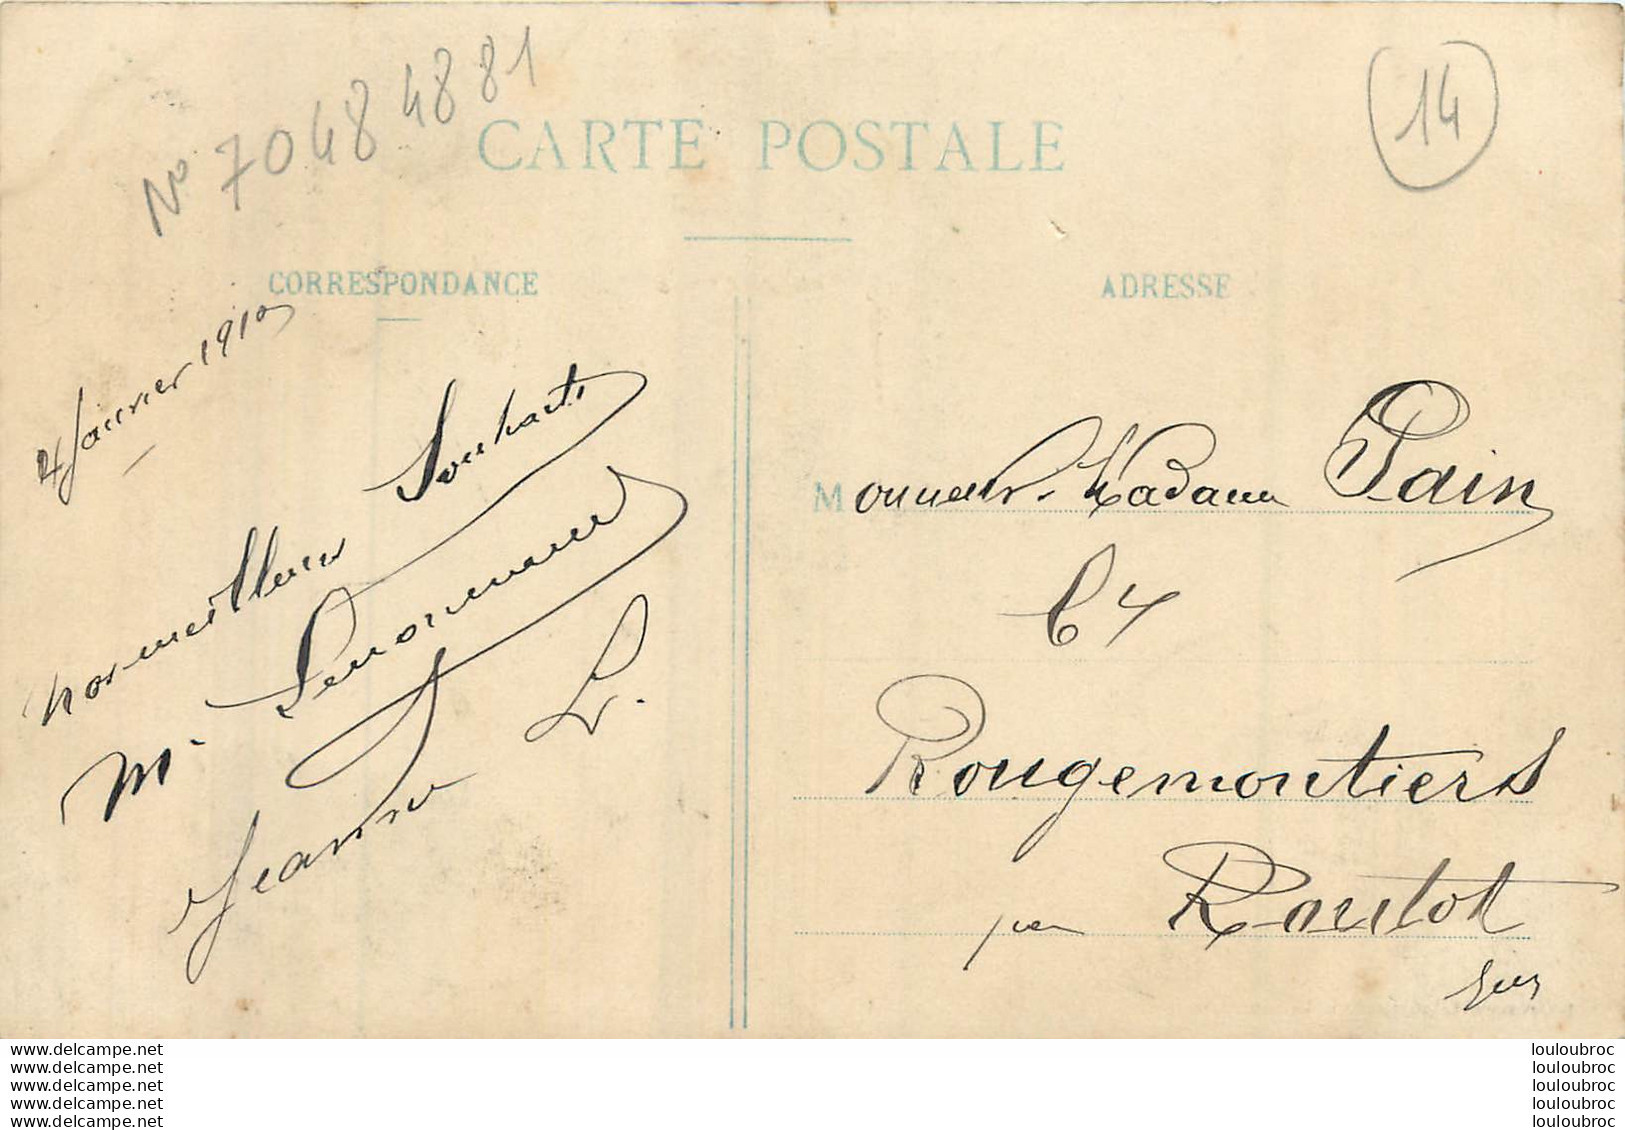 No 7048 4881
14
CARTE POSTALE
CORRESPONDANCE
ADRESSE
4 Janvier 1910
nos meilleurs Souhaits
M. Lenormand
Jeanne L.
Monsieur. Madame Pain
Rougemontiers
par Routot
Eure
www.delcampe.net
www.delcampe.net
www.delcampe.net
www.delcampe.net
www.delcampe.net
louloubroc
louloubroc
louloubroc
louloubroc
louloubroc